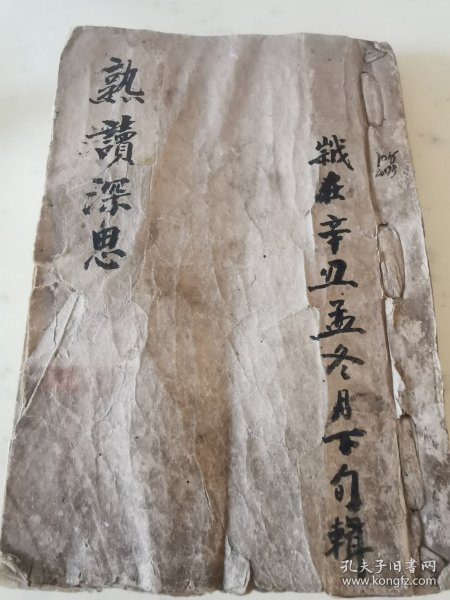 歲在辛丑孟冬月下旬輯
熟讀深思
孔夫子旧书网
www.kongfz.com